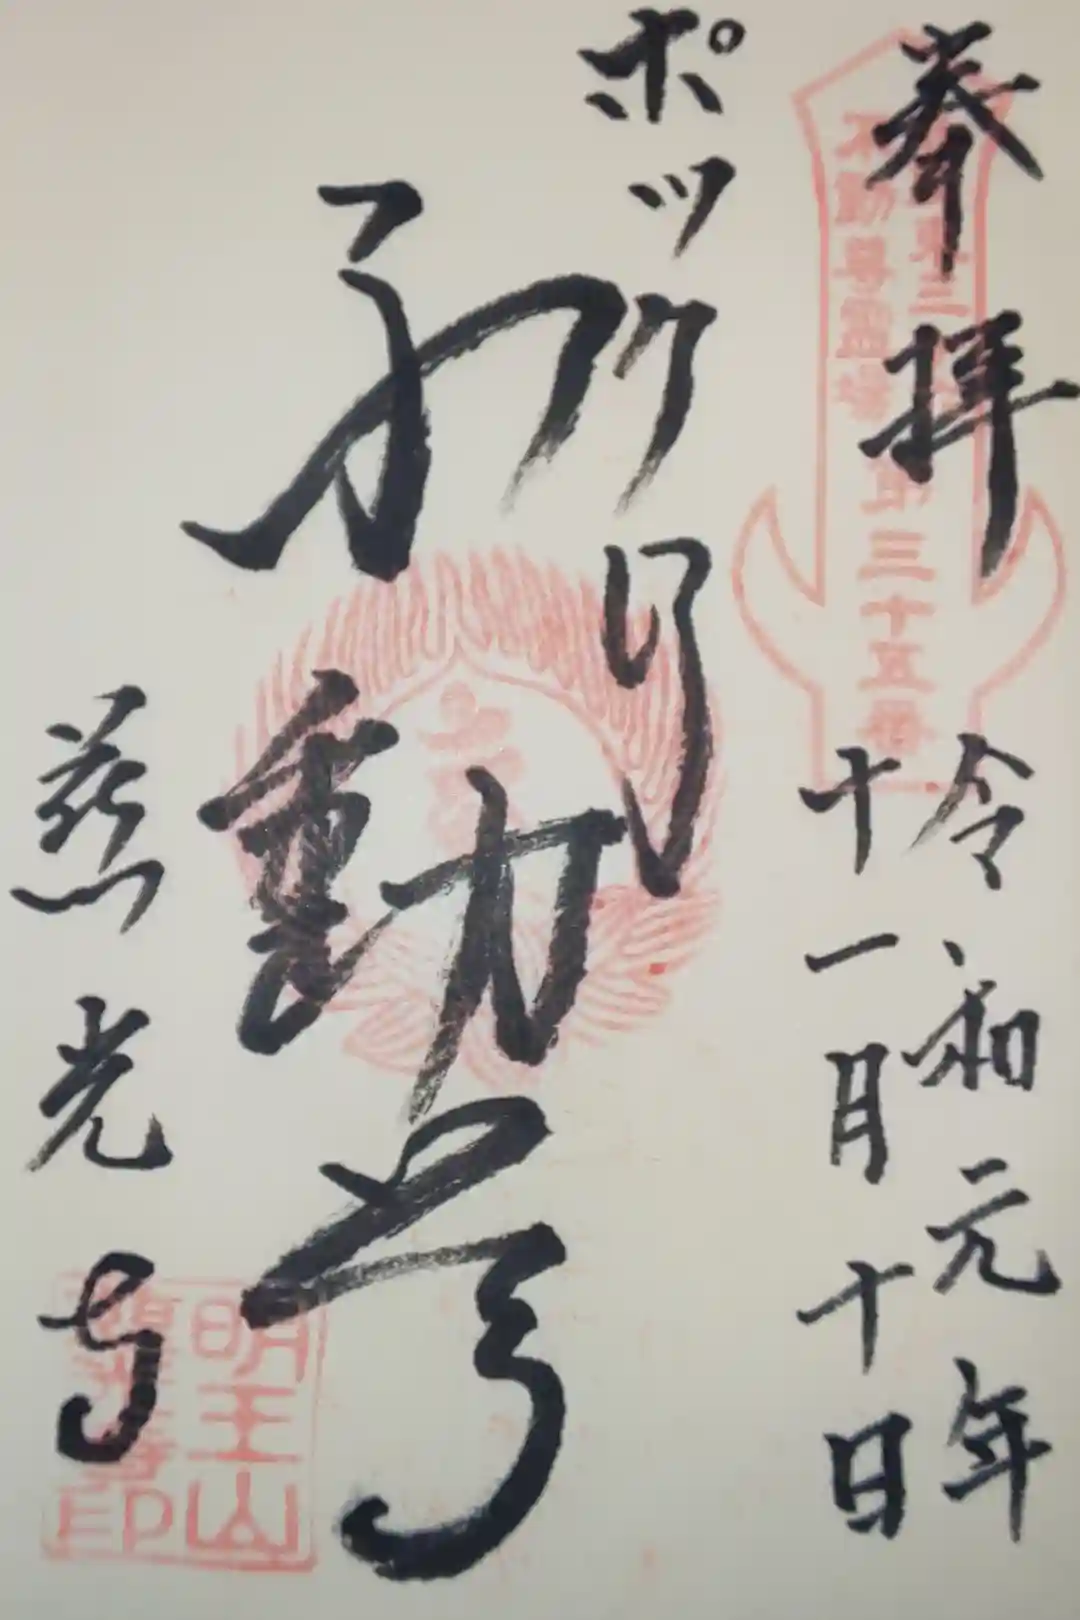 奉拝
東三
不動尊霊場
第三十五番
令和元年
十一月十日
ポックリ
不動尊
慈光寺
明王山
印